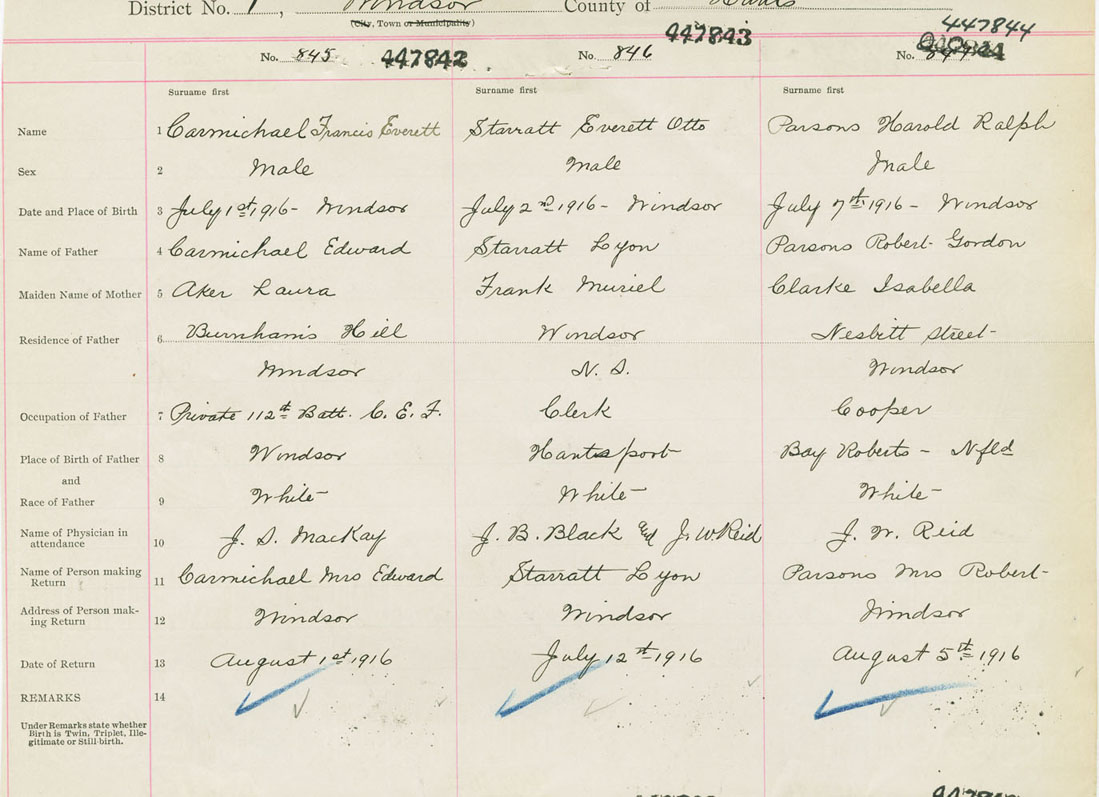 District No. 1, Windsor County of Hants
(City, Town or Municipality)
447843 447844
No. 845 447842 No. 846 No.
Surname first Surname first Surname first
Name 1 Carmichael Francis Everett Starratt Everett Otto Parsons Harold Ralph
Sex 2 Male Male Male
Date and Place of Birth 3 July 1st 1916 - Windsor July 2nd 1916 - Windsor July 7th 1916 - Windsor
Name of Father 4 Carmichael Edward Starratt Lyon Parsons Robert Gordon
Maiden Name of Mother 5 Aker Laura Frank Muriel Clarke Isabella
Residence of Father 6 Burnham's Hill Windsor Nesbitt Street
Windsor N. S. Windsor
Occupation of Father 7 Private 112th Batt. C. E. F. Clerk Cooper
Place of Birth of Father 8 Windsor Hantsport Bay Roberts - Nfld
and
Race of Father 9 White White White
Name of Physician in
attendance 10 J. S. MacKay J. B. Black & J. W Reid J. W. Reid
Name of Person making
Return 11 Carmichael Mrs Edward Starratt Lyon Parsons Mrs Robert
Address of Person mak-
ing Return 12 Windsor Windsor Windsor
Date of Return 13 August 1st 1916 July 12th 1916 August 5th 1916
REMARKS 14
Under Remarks state whether
Birth is Twin, Triplet, Ille-
gitimate or Still-birth.